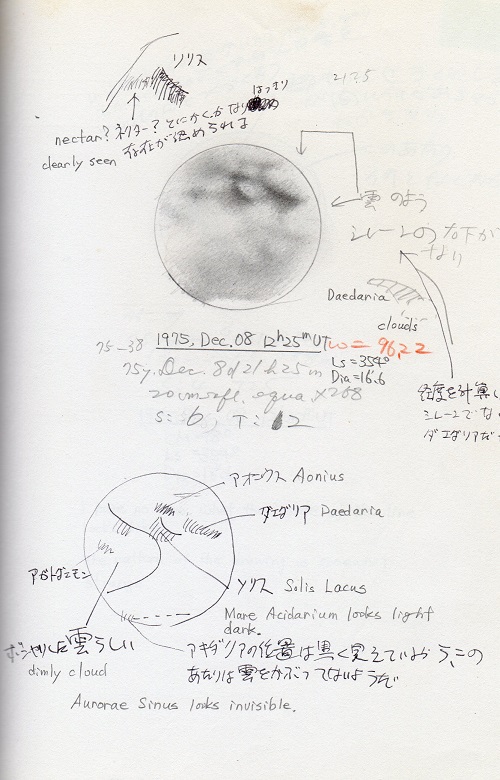 ソリス
217.5
はっきり
nectar? ネクター? とにかくかなり
clearly seen 存在が認められる
雲のよう
シレーンの右下が
Daedania
clouds
75-38 1975, Dec. 08 12h25mUT ω= 96.22
Ls=354°
75y. Dec. 8d 21h 25m Dia=16.6
20cm refl. equa. x268
S: 6, T: 2
経度を計算
シレーンでな
ダエダリアだ
アオニウス Aonius
ダエダリア Daedania
アガトダエモン
ソリス Solis Lacus
Mare Acidarium looks light
dark.
ボンヤリした雲らしい
dimly cloud
アキダリアの位置は黒く見えているから、この
あたりは雲をかぶってないようだ
Aurorae Sinus looks invisible.